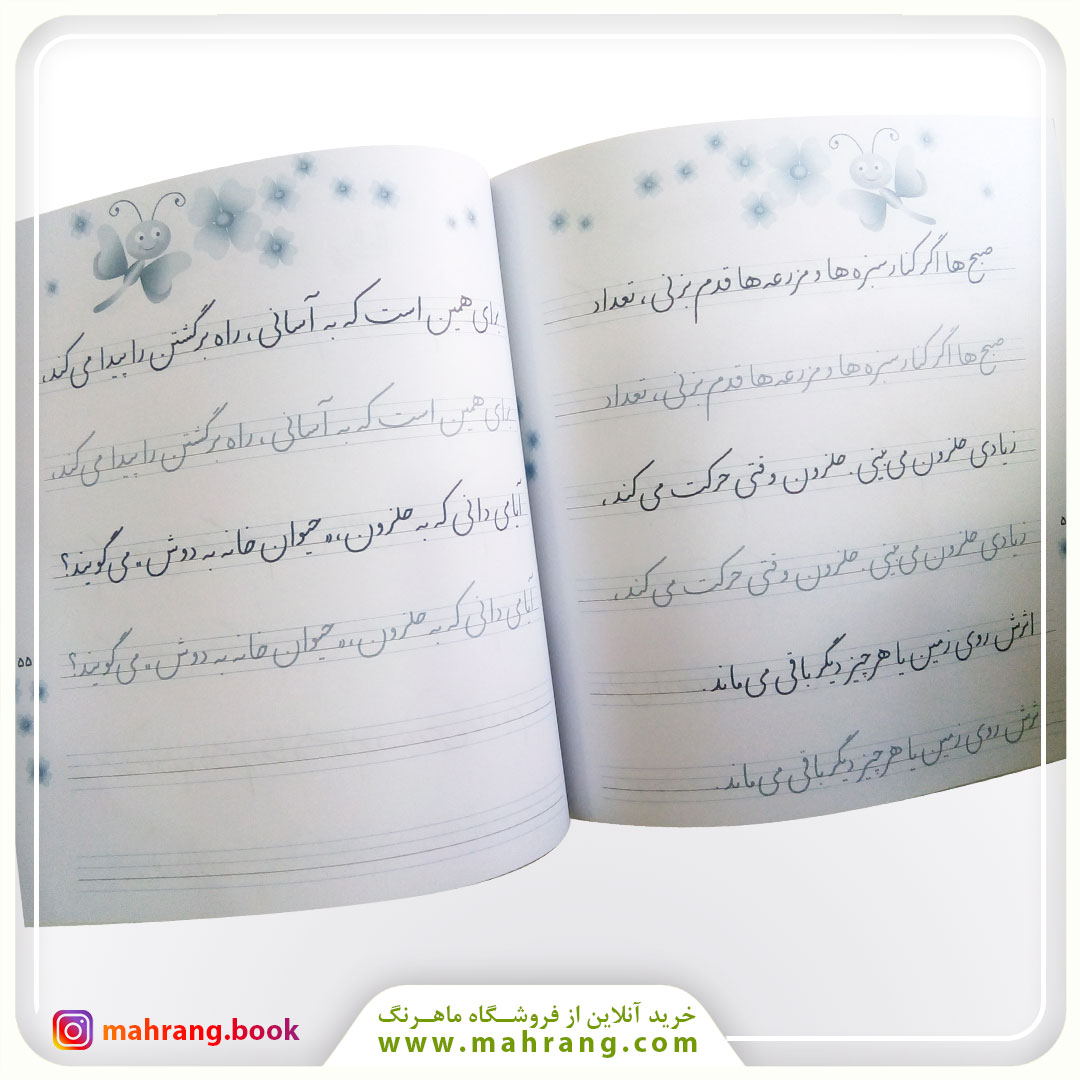 صبح‌ها اگر کنار سبزه‌ها و مزرعه‌ها قدم بزنی، تعداد
صبح‌ها اگر کنار سبزه‌ها و مزرعه‌ها قدم بزنی، تعداد
زیادی حلزون می‌بینی. حلزون وقتی حرکت می‌کند،
زیادی حلزون می‌بینی. حلزون وقتی حرکت می‌کند،
اثرش روی زمین یا هر چیز دیگر باقی می‌ماند.
اثرش روی زمین یا هر چیز دیگر باقی می‌ماند.
برای همین است که به آسانی، راه برگشتن را پیدا می‌کند.
برای همین است که به آسانی، راه برگشتن را پیدا می‌کند.
آیا می‌دانی که به حلزون، «حیوان خانه به دوش» می‌گویند؟
آیا می‌دانی که به حلزون، «حیوان خانه به دوش» می‌گویند؟
۵۵
mahrang.book
خرید آنلاین از فروشگاه ماهرنگ
www.mahrang.com